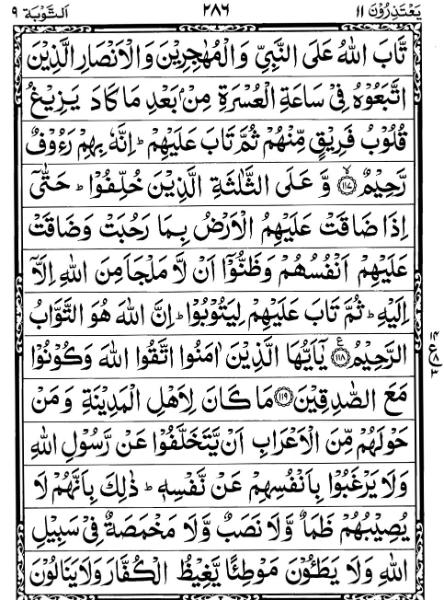 يَعْتَذِرُوْنَ ١١ ٢٨٦ اَلتَّوْبَة ٩
تَّابَ اللّٰهُ عَلَى النَّبِيِّ وَالْمُهٰجِرِيْنَ وَالْاَنْصَارِ الَّذِيْنَ
اتَّبَعُوْهُ فِيْ سَاعَةِ الْعُسْرَةِ مِنْۢ بَعْدِ مَا كَادَ يَزِيْغُ
قُلُوْبُ فَرِيْقٍ مِّنْهُمْ ثُمَّ تَابَ عَلَيْهِمْ ؕ اِنَّهٗ بِهِمْ رَءُوْفٌ
رَّحِيْمٌ ۙ﴿١١٧﴾ وَّ عَلَى الثَّلٰثَةِ الَّذِيْنَ خُلِّفُوْا ؕ حَتّٰۤى
اِذَا ضَاقَتْ عَلَيْهِمُ الْاَرْضُ بِمَا رَحُبَتْ وَضَاقَتْ
عَلَيْهِمْ اَنْفُسُهُمْ وَظَنُّوْۤا اَنْ لَّا مَلْجَاَ مِنَ اللّٰهِ اِلَّاۤ
اِلَيْهِ ؕ ثُمَّ تَابَ عَلَيْهِمْ لِيَتُوْبُوْا ؕ اِنَّ اللّٰهَ هُوَ التَّوَّابُ
الرَّحِيْمُ ﴿١١٨﴾ۧ يٰۤاَيُّهَا الَّذِيْنَ اٰمَنُوا اتَّقُوا اللّٰهَ وَكُوْنُوْا
مَعَ الصّٰدِقِيْنَ ﴿١١٩﴾ مَا كَانَ لِاَهْلِ الْمَدِيْنَةِ وَمَنْ
حَوْلَهُمْ مِّنَ الْاَعْرَابِ اَنْ يَّتَخَلَّفُوْا عَنْ رَّسُوْلِ اللّٰهِ
وَلَا يَرْغَبُوْا بِاَنْفُسِهِمْ عَنْ نَّفْسِهٖ ؕ ذٰلِكَ بِاَنَّهُمْ لَا
يُصِيْبُهُمْ ظَمَاٌ وَّلَا نَصَبٌ وَّلَا مَخْمَصَةٌ فِيْ سَبِيْلِ
اللّٰهِ وَلَا يَطَـُٔوْنَ مَوْطِئًا يَّغِيْظُ الْكُفَّارَ وَلَا يَنَالُوْنَ